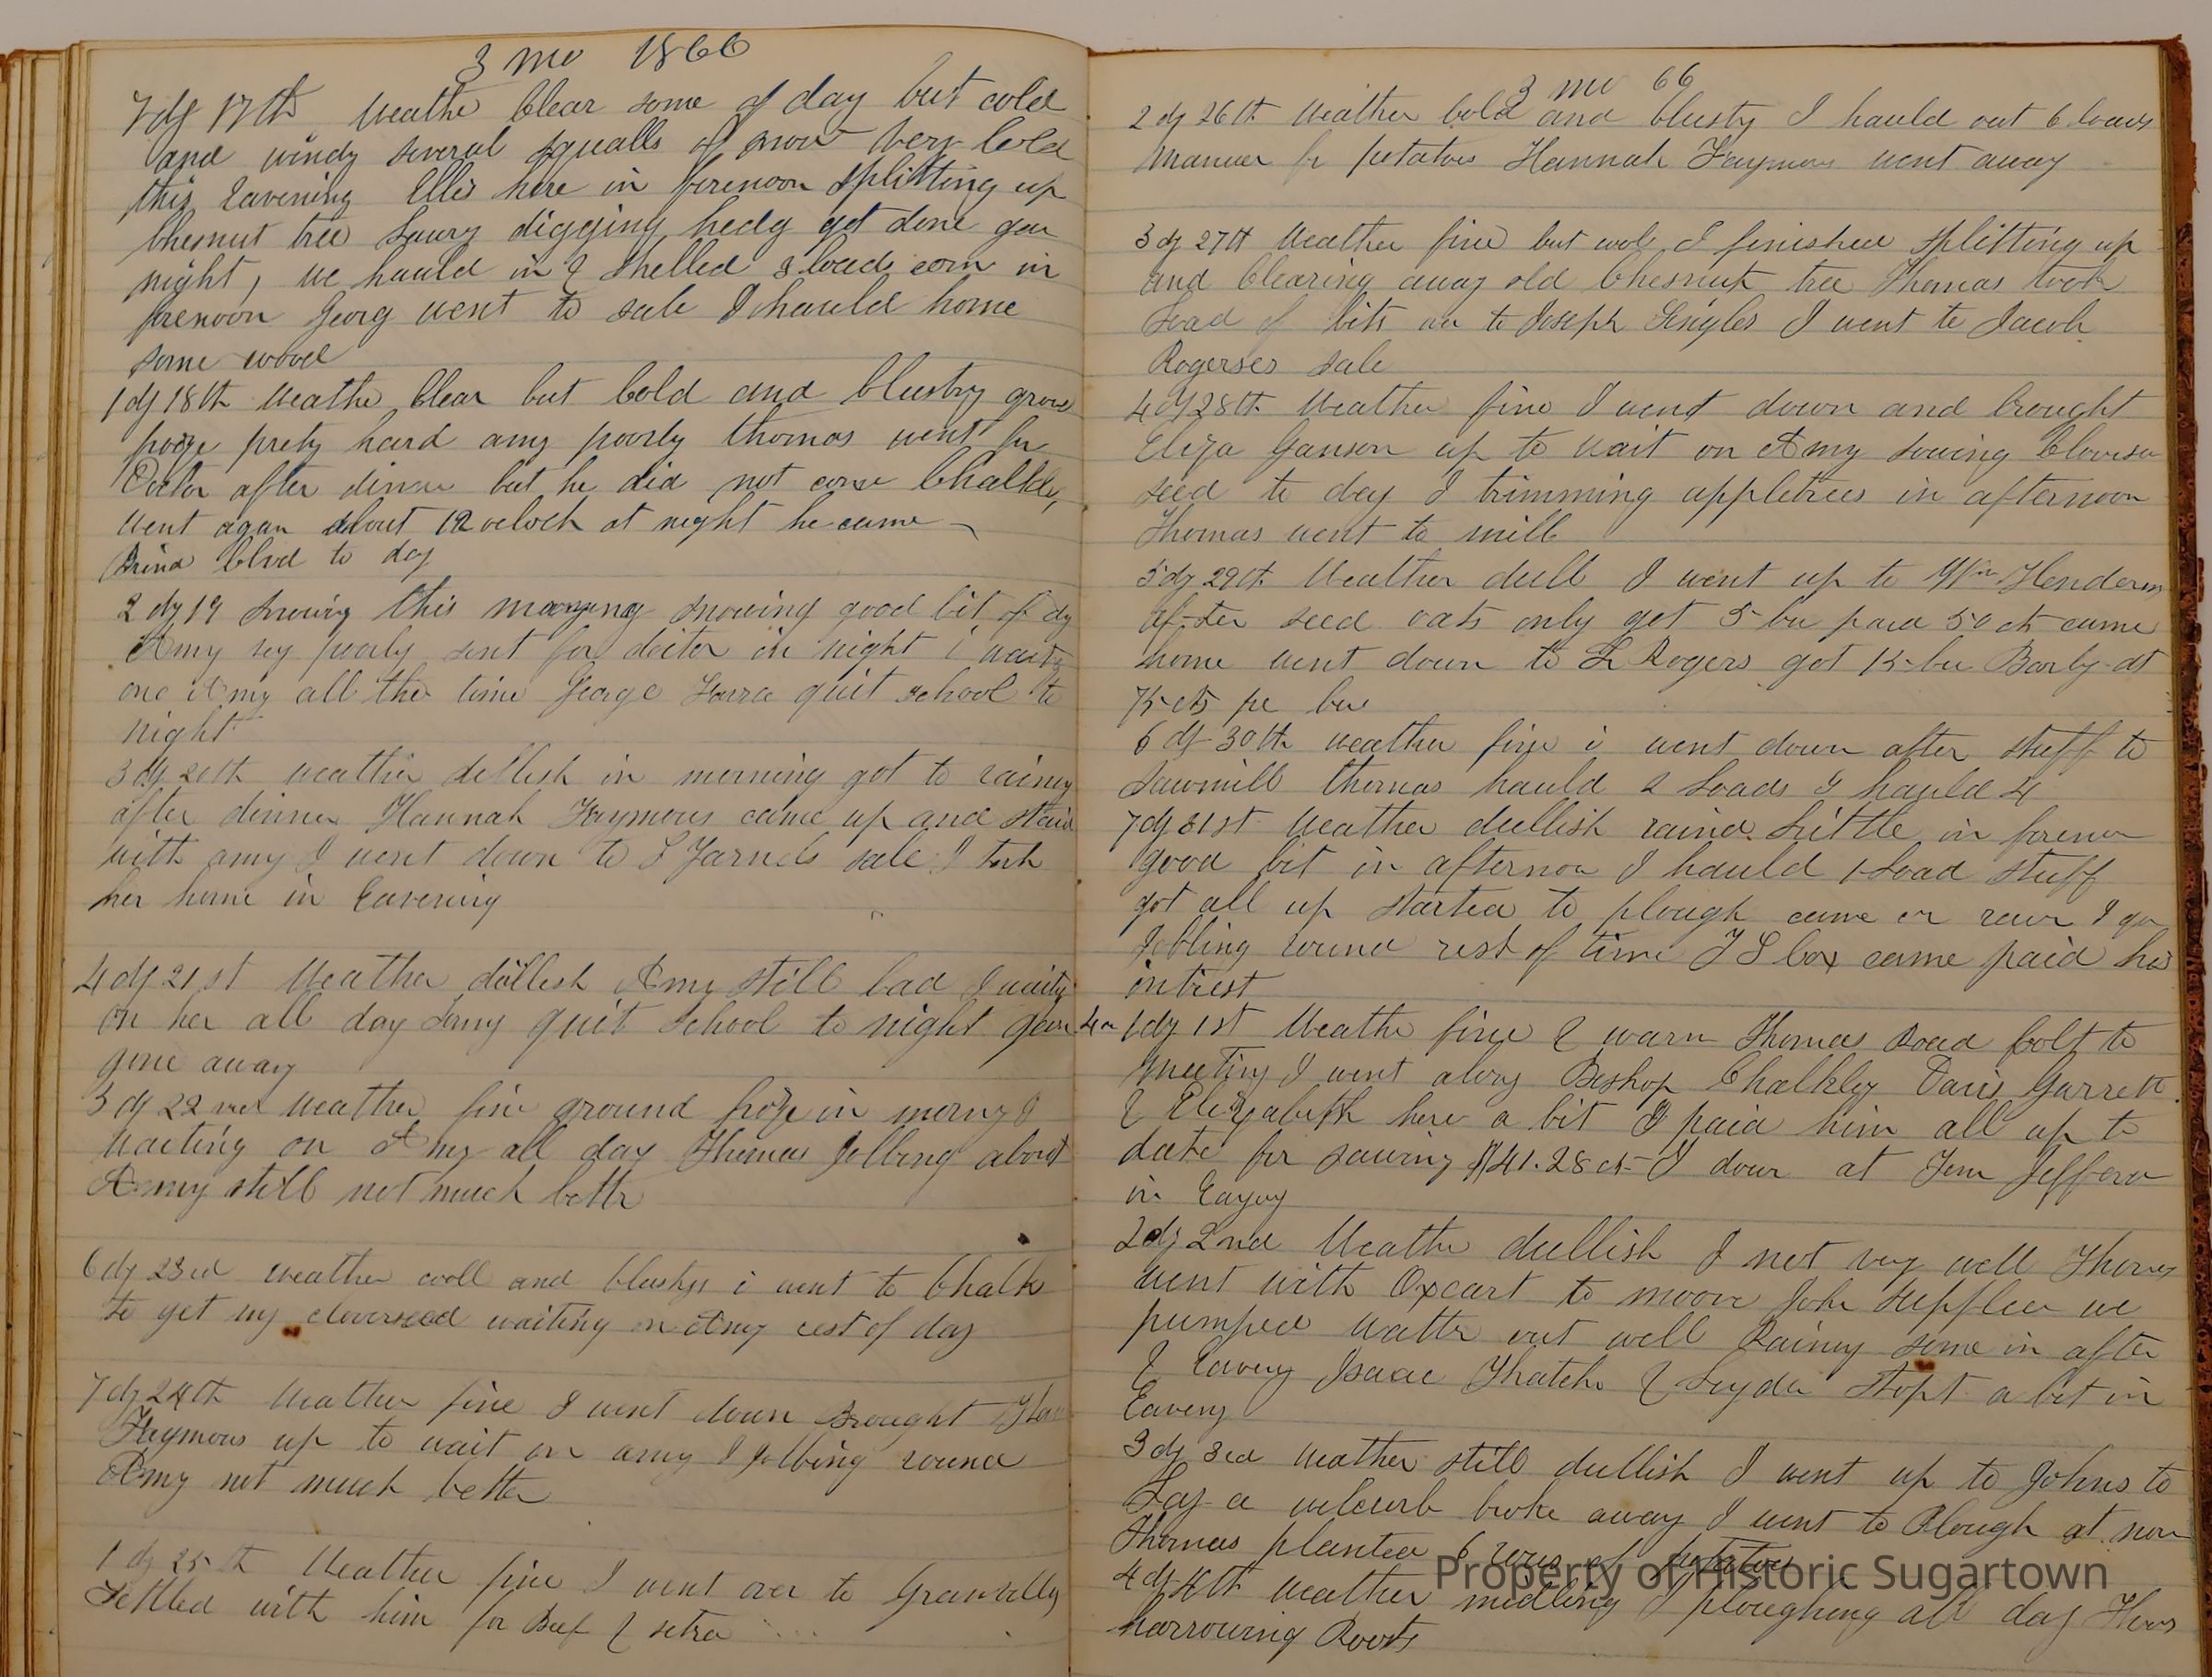 3 mo 1866
7 dy 17th Weathe Clear some of day but cold
and windy several squalls of snow very Cold
this Eavening Ellis here in forenoon splitting up
Chesnut tree digging hedg got done
night, we hauld in & shelled 3 load corn in
forenoon Georg went to sale I hauld home
some wood
1 dy 18th Weathe Clear but Cold and blustry
froze prety hard amy poorly thomas went for
Doctor after dinner but he did not come Chalkley
went agan about 12 oclock at night he came
to day
2 dy 19 snowing this snowing good bit of dy
Amy poorly sent for docter in night i
one Amy all the time George quit school to
night
3 dy 20th weather dullish in morning got to rainy
after dinner Hannah came up and staid
with amy I went down to sale I took
her home in Eavening
4 dy 21st Weather dullish Amy still bad I waity
on her all day quit school to night
gone away
5 dy 22nd Weather fine ground froze in morny I
Waiting on Amy all day Thomas Jobbing about
Amy still not much bettr
6 dy 23rd weather cooll and blustry i went to Chalk
to get my cloverseed waiting on Amy rest of day
7 dy 24th Weather fine I went down Brought
up to wait on amy I jobbing round
Amy not much better
1 dy 25th Weather fine I went over to
Settled with him for Beef &
3 mo 66
2 dy 26th Weather Cold and blusty I hauld out 6 loads
for potatoes Hannah went away
3 dy 27th Weather fine but cool I finished splitting up
and Clearing away old Chesnut tree Thomas took
Load of to Joseph I went to Jacob
Rogerses sale
4 dy 28th Weather fine I went down and brought
Eliza Ganson up to wait on Amy sowing
seed to day I trimming appletrees in afternoon
Thomas went to mill
5 dy 29th Weather dull I went up to Wm Henderson
after seed oats only get 5 bu paid 50 cts came
home went down to L Rogers got 15 bu Barly at
75 cts pe bus
6 dy 30th weather fine i went down after stuff to
Sawmill thomas hauld 2 Loads I hauld 4
7 dy 31st Weather dullish raind Little in forenon
good bit in afternon I hauld 1 Load stuff
got all up started to plough came on
Jobling round rest of time came paid his
intrest
4 m 1 dy 1st Weathe fine & warm Thomas colt to
meeting I went along Bishop Chalkley Davis Garrett
& Elizabeth here a bit I paid him all up to
date for sawing $41.28 cts I down at Jefferer
in
2 dy 2nd Weathe dullish I not very well
went with Oxcart to moove John we
pumped Wattr out well Rainy some in after
& Eaveng Isaac & stopt a bit in
Eaveng
3 dy 3rd weather still dullish I went up to Johns to
Lay a welcurb broke away I went to Plough at
Thomas planted 6 rows of potatoes
4 dy 4th weather midling I ploughing all day
harrowing Roots
Property of Historic Sugartown